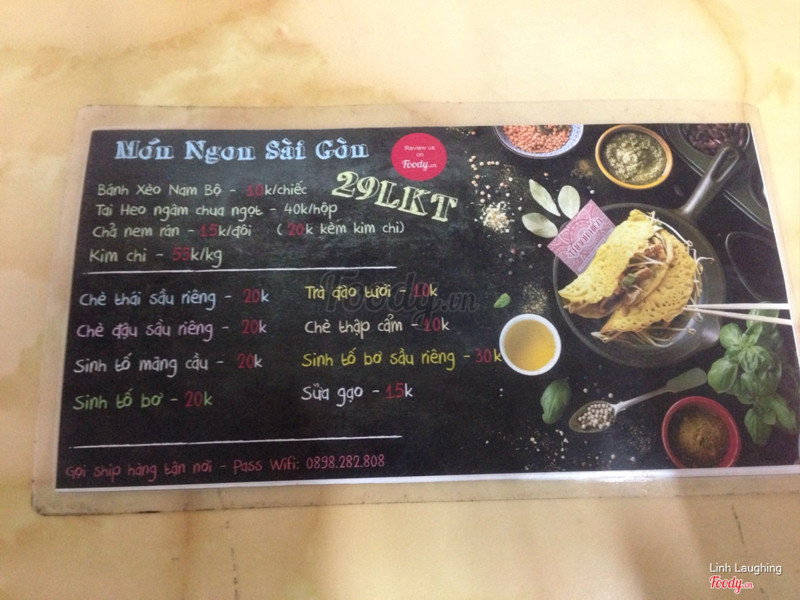 Món Ngon Sài Gòn
Review us on
Foody.vn
29LKT
Bánh Xèo Nam Bộ - 10k/chiếc
Tai Heo ngâm chua ngọt - 40k/hộp
Chả nem rán - 15k/đôi ( 20k kèm kim chi)
Kim chi - 55k/kg
Foody.vn
Chè thái sầu riêng - 20k
Chè đậu sầu riêng - 20k
Sinh tố mãng cầu - 20k
Sinh tố bơ - 20k
Trà đào tươi - 10k
Chè thập cẩm - 10k
Sinh tố bơ sầu riêng - 30k
Sữa gạo - 15k
Gọi ship hàng tận nơi - Pass Wifi: 0898.282.808
Linh Laughing
Foody.vn